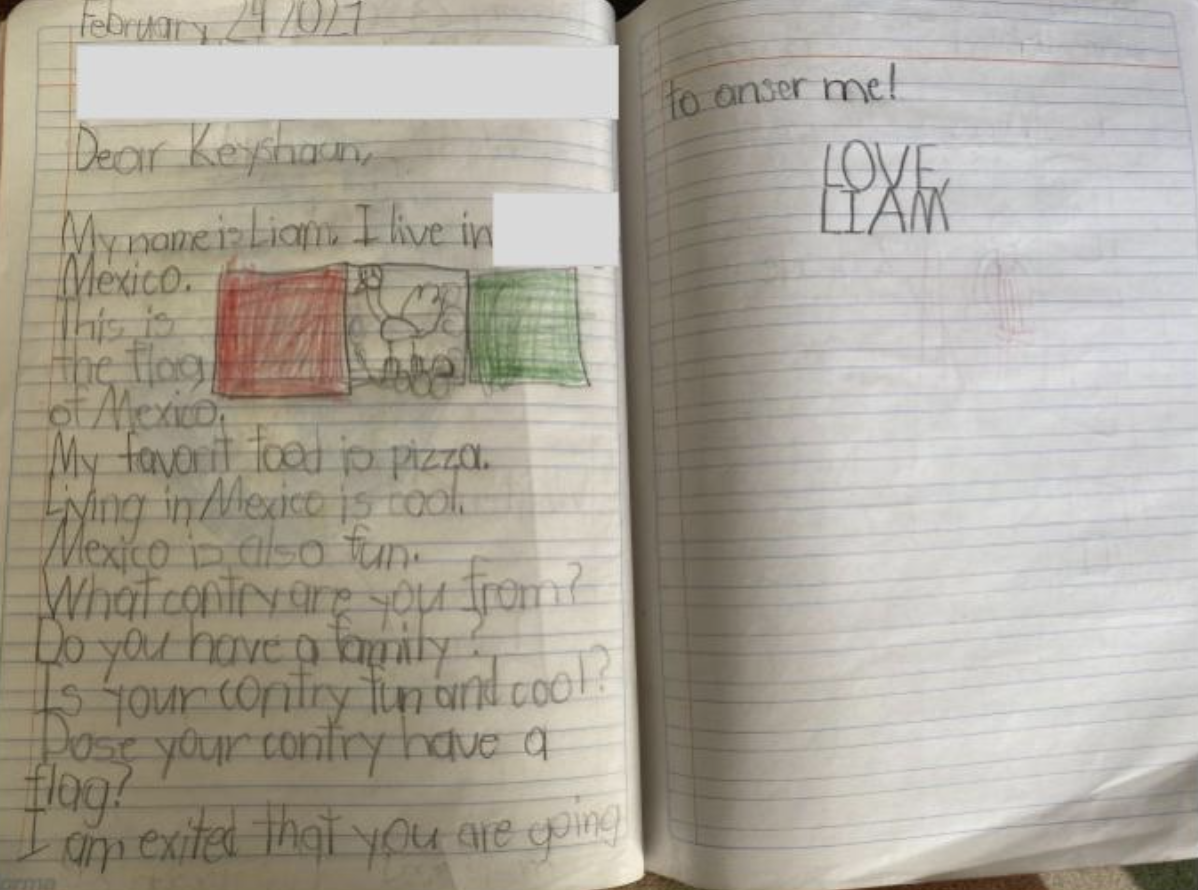 February, 24 2021
Dear Keyshaun,
My name is Liam. I live in
Mexico.
This is
the flag
of Mexico.
My favorit food is pizza.
Living in Mexico is cool.
Mexico is also fun.
What contry are you from?
Do you have a family?
Is your contry fun and cool?
Dose your contry have a
flag?
I am exited that you are going
to anser me!
LOVE,
LIAM